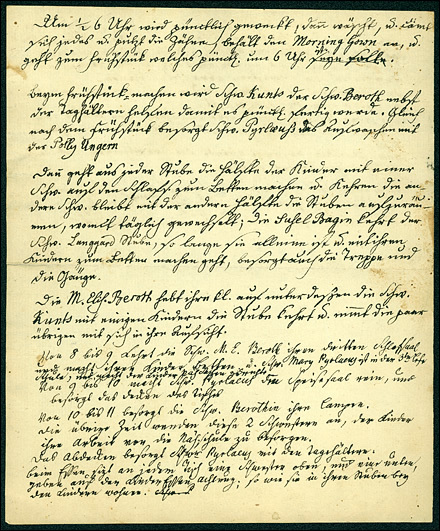 Um ½ 6 Uhr wird pünctlich geweckt, dan wäscht, u. kämt
sich jedes u. putzt die Zähne, behält den Morning Gown an, u.
geht zum Frühstück welches pünctl. um 6 Uhr seyn solle.
beym Frühstück machen wird Schw. Kunts der Schw. Beroth nebst
der Taghältern helfen damit es pünctl. fertig werde. Gleich
nach dem Frühstück besorgt Schw. das Aufwaschen mit
der Polly Ungern
Dan geht aus jeder Stube die Hälfte der Kinder mit einer
Schw. auf den Schlafs. zum Betten machen u. Kehren die an-
dere Schw. bleibt mit der andern Hälfte die Stuben aufzuräu-
men, womit täglich gewechselt; die kehrt der
Schw. Stube, so lange sie alleine ist u. mit ihren
Kindern zum Betten machen geht, besorgt auch die Treppe und
die Gänge.
Die M. Elis. Beroth hebt ihre kl. auf unterdessen die Schw.
Kunts mit einigen Kindern die Stube kehrt u. nimt die paar
übrigen mit sich in ihre Aufsicht.
Von 8 bis 9 kehrt die Schw. M. E. Beroth ihren dritten Schlafsaal
und macht ihrer Kinder Betten Schw. Mary ist in der
Schule,
Von 9 bis 10 macht Schw. den Speisesaal rein, und
besorgt das Decken des Tisches
Von 10 bis 11 besorgt die Schw. Berothin ihre Lampen.
Die übrige Zeit wenden diese 2 Schwestern an, der Kinder
ihre Arbeit vor, die Nähschule zu besorgen.
Das Abdecken besorgt Schw. mit den Taghältern.
beim Essen sizt an jedem Tisch eine Schwester oben, und eine unten,
geben auf der Kinder Essen achtung, so wie sie in ihren Stuben bey
den Kindern wohnen.